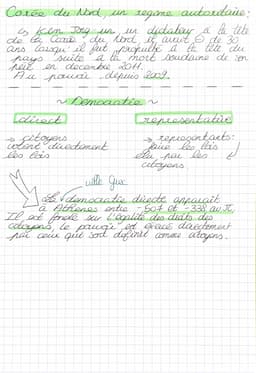 Corée du Nord, un régime autoritaire:
Kim Jong un, un dictateur à la tête
de la Corée du Nord il avait - de 30
ans lorsqu'il fut propulsé à la tête du
pays suite à la mort soudaine de son
père en décembre 2011.
Au pouvoir depuis 2009.
~ Démocratie ~
directe représentative
→ citoyens → représentants:
votent directement faire les lois
les lois élu par les
citoyens
ville Grec
La démocratie directe apparaît
à Athènes entre -507 et -338 av JC
Il est fondé sur l'égalité des droits des
citoyens, le pouvoir est exercé directement
par ceux qui sont définit comme citoyens.